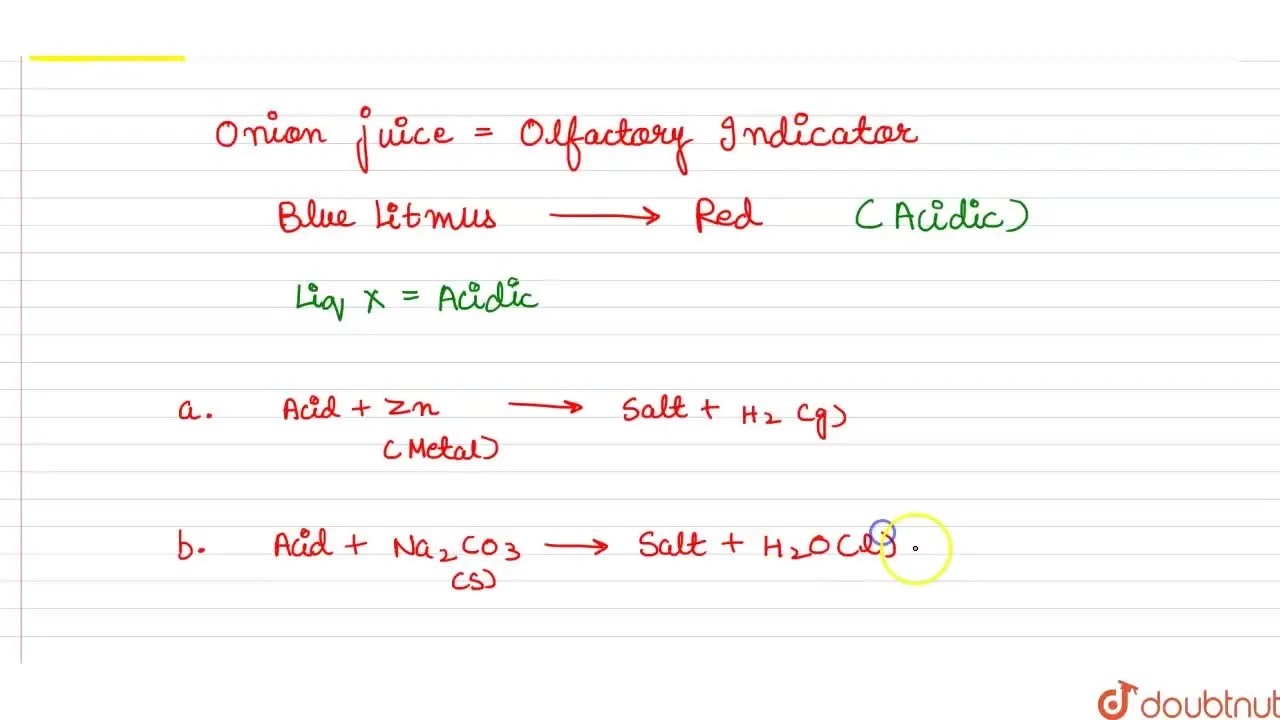 Onion juice = Olfactory Indicator
Blue Litmus ⟶ Red (Acidic)
Liq X = Acidic
a. Acid + Zn ⟶ Salt + H₂ (g)
(Metal)
b. Acid + Na₂CO₃ ⟶ Salt + H₂O(l)
(S)
doubtnut